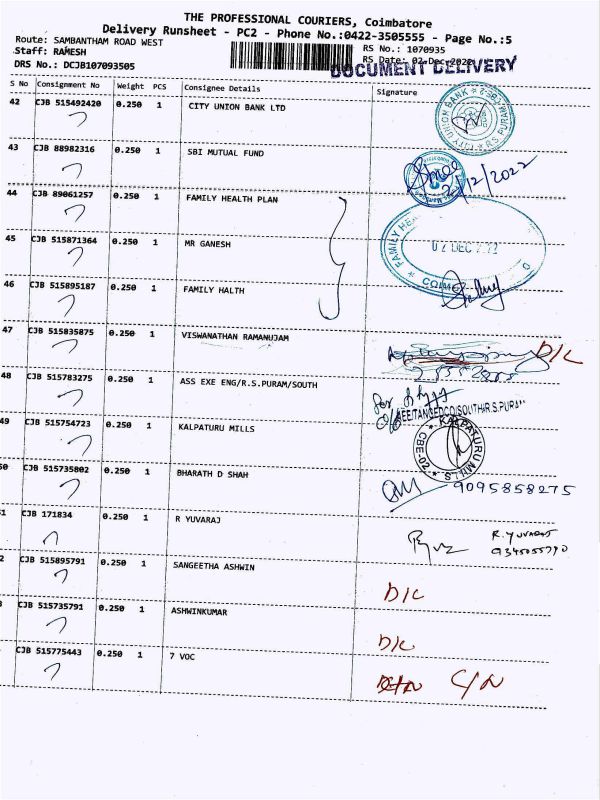 THE PROFESSIONAL COURIERS, Coimbatore
Delivery Runsheet - PC2 - Phone No.:0422-3505555 - Page No.:5
Route: SAMBANTHAM ROAD WEST
RS No.: 1070935
Staff: RAMESH
RS Date: 02-Dec-2022
DRS No.: DCJB107093505
DOCUMENT DELIVERY
S No Consignment No Weight PCS Consignee Details Signature
42 CJB 515492420 0.250 1 CITY UNION BANK LTD
CITY UNION BANK
43 CJB 88982316 0.250 1 SBI MUTUAL FUND
2/12/2022
44 CJB 89061257 0.250 1 FAMILY HEALTH PLAN
FAMILY HEA
45 CJB 515871364 0.250 1 MR GANESH
02 DEC
46 CJB 515895187 0.250 1 FAMILY HALTH
47 CJB 515835875 0.250 1 VISWANATHAN RAMANUJAM
D/L
48 CJB 515783275 0.250 1 ASS EXE ENG/R.S.PURAM/SOUTH
AEE/TANGEDCO/SOUTH/R.S.PURAM
49 CJB 515754723 0.250 1 KALPATURU MILLS
KALPATURU MILLS
CBE-02
50 CJB 515735802 0.250 1 BHARATH D SHAH
9095858275
51 CJB 171834 0.250 1 R YUVARAJ
R. YUVARAJ
2 CJB 515895791 0.250 1 SANGEETHA ASHWIN
D/L
3 CJB 515735791 0.250 1 ASHWINKUMAR
D/L
CJB 515775443 0.250 1 7 VOC
C/N